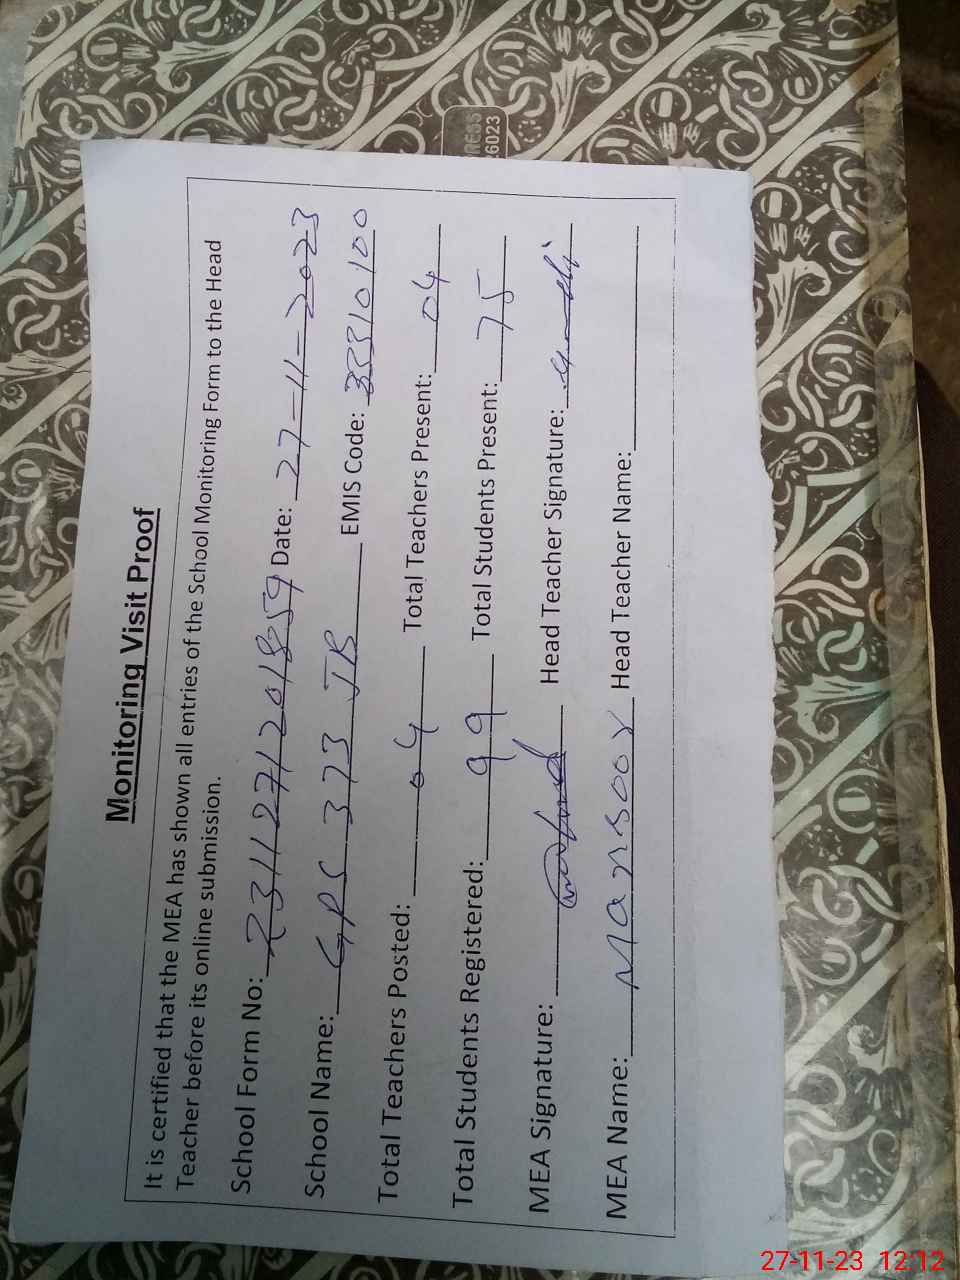 Monitoring Visit Proof
It is certified that the MEA has shown all entries of the School Monitoring Form to the Head
Teacher before its online submission.
School Form No: 2311271201859 Date: 27-11-2023
School Name: GPS 373 JB EMIS Code: 33310100
Total Teachers Posted: 04 Total Teachers Present: 04
Total Students Registered: 99 Total Students Present: 75
MEA Signature: Head Teacher Signature:
MEA Name: Mansoor Head Teacher Name:
RESS
6023
27-11-23 12:12